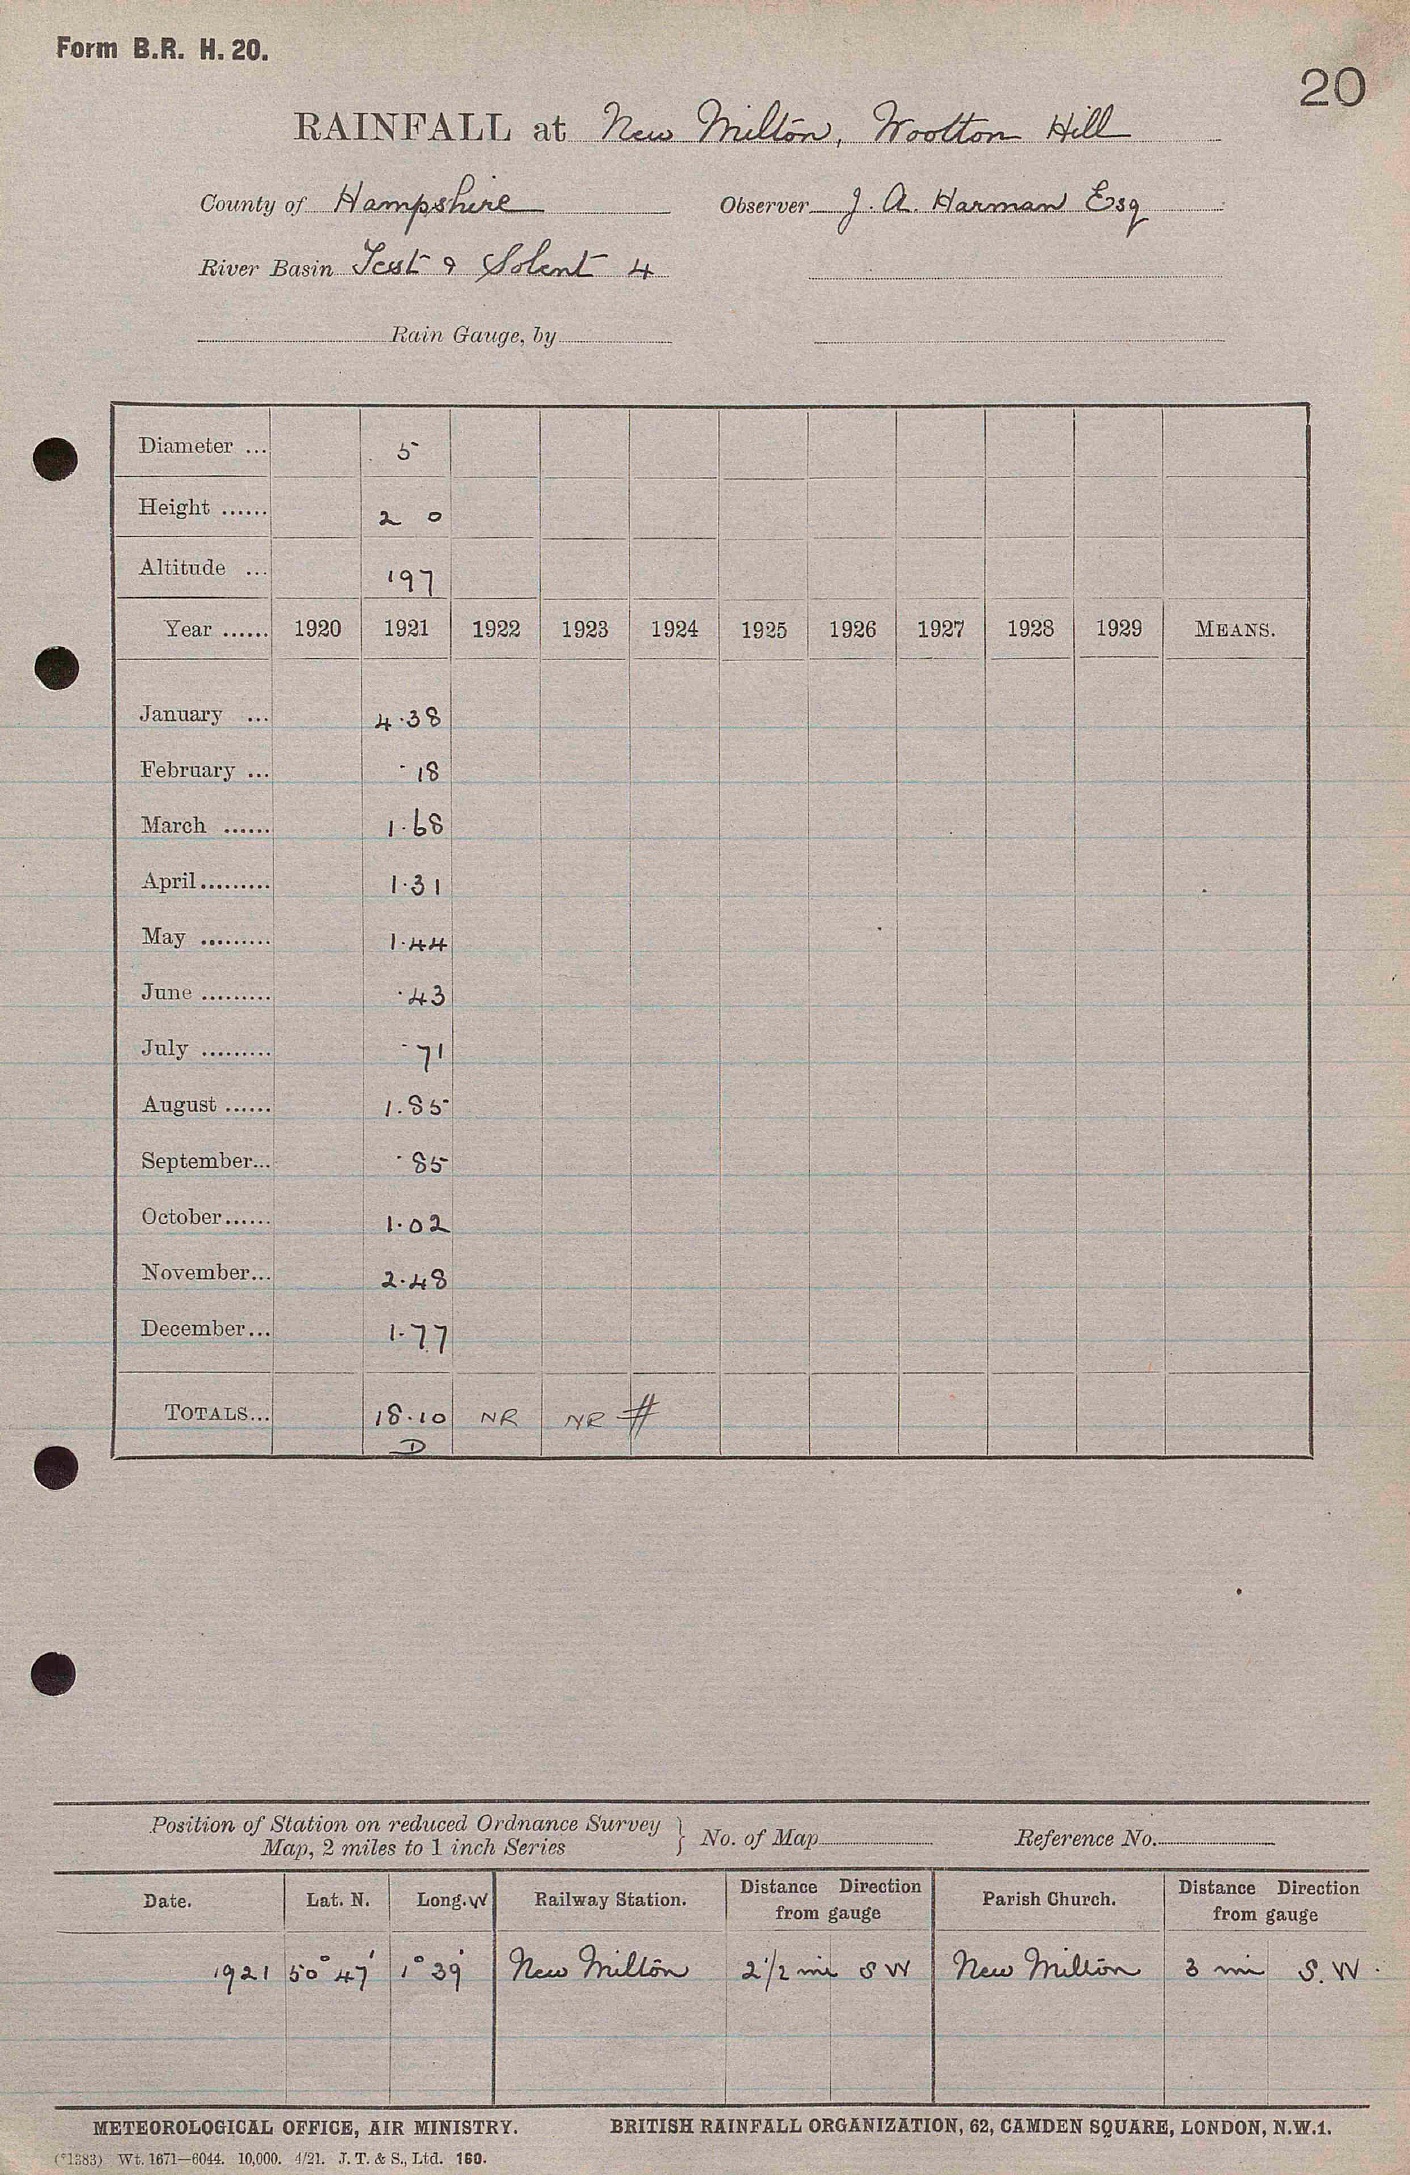 Form B.R. H. 20.
20
RAINFALL at New Milton, Wootton Hill
County of Hampshire Observer J. A. Harman Esq
River Basin Test & Solent 4
Rain Gauge, by
Diameter ... 5
Height ...... 2 0
Altitude ... 197
Year ...... 1920 1921 1922 1923 1924 1925 1926 1927 1928 1929 MEANS.
January ... 4.38
February ... .18
March ...... 1.68
April ......... 1.31
May ......... 1.44
June ......... .43
July ......... .71
August ...... 1.85
September... .85
October...... 1.02
November... 2.48
December... 1.77
TOTALS... 18.10 NR NR #
D
Position of Station on reduced Ordnance Survey
Map, 2 miles to 1 inch Series } No. of Map Reference No.
Date. Lat. N. Long. W Railway Station. Distance Direction from gauge Parish Church. Distance Direction from gauge
1921 50° 47' 1° 39' New Milton 2 1/2 mi S W New Milton 3 mi S. W.
METEOROLOGICAL OFFICE, AIR MINISTRY. BRITISH RAINFALL ORGANIZATION, 62, CAMDEN SQUARE, LONDON, N.W.1.
(*1383) Wt. 1671—6044. 10,000. 4/21. J. T. & S., Ltd. 160.